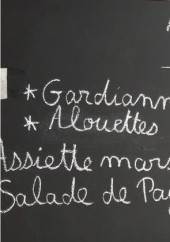 * Gardiann
* Alouettes
Assiette mars
Salade de Pay